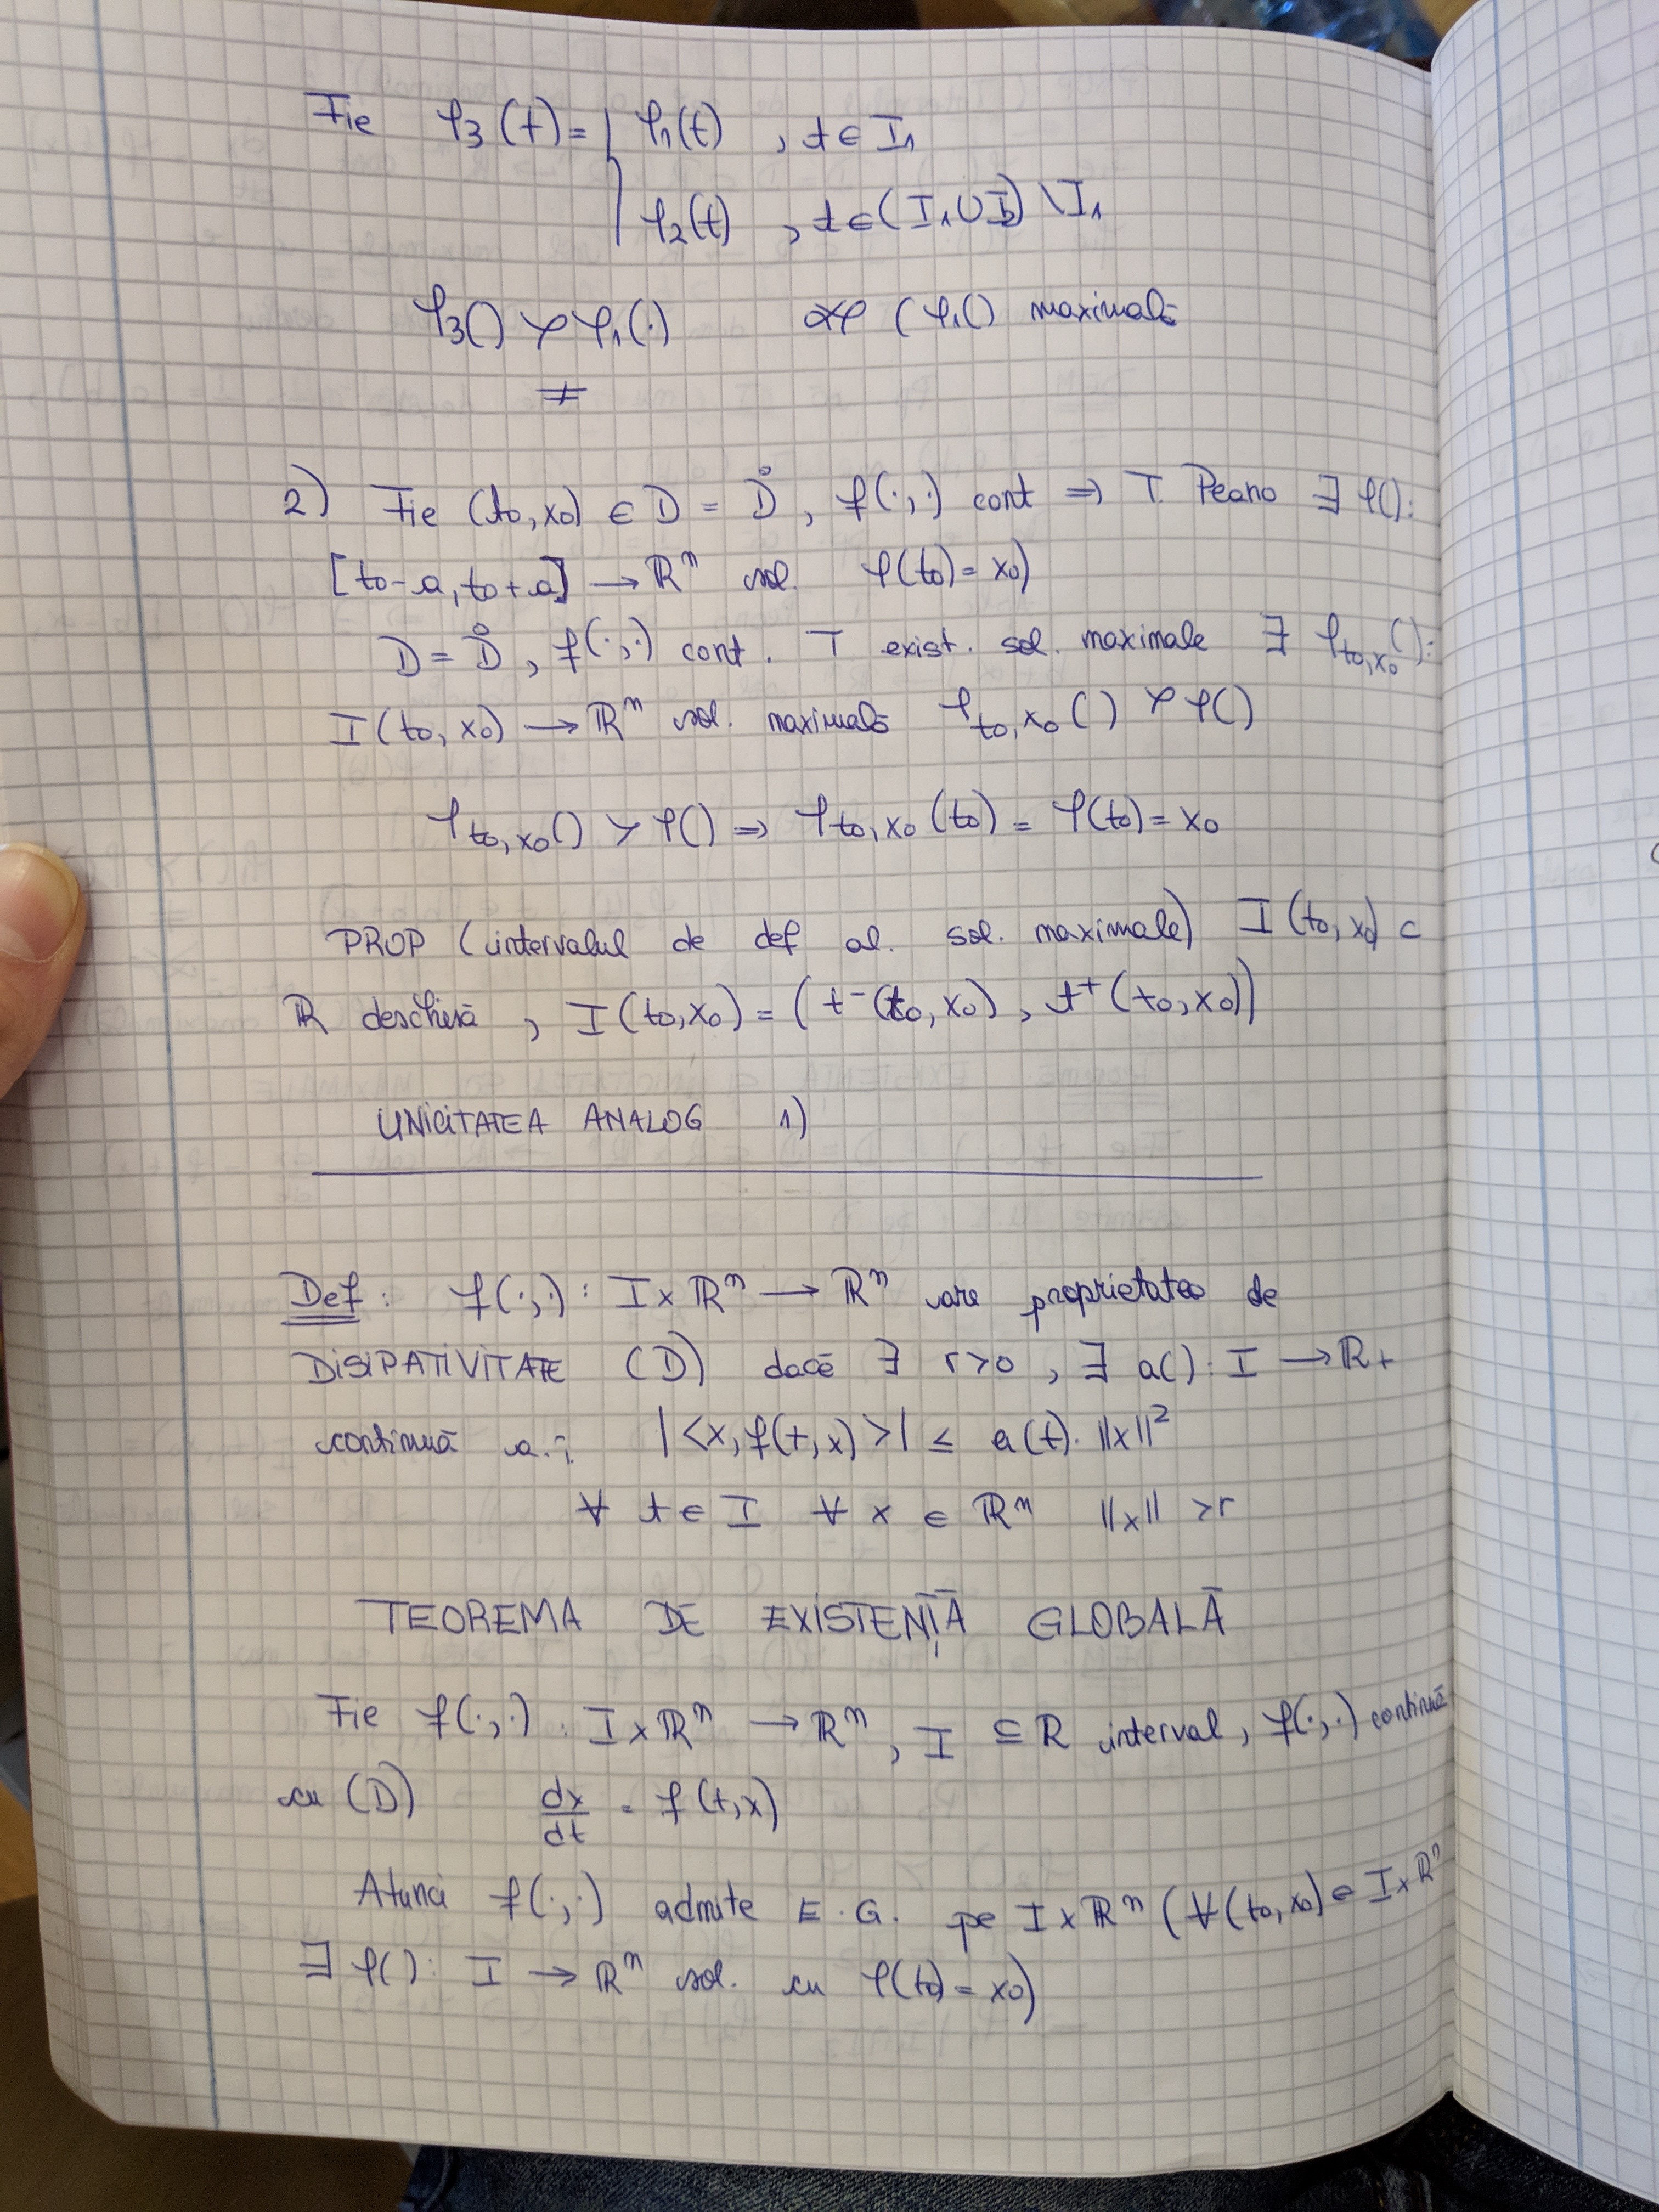 Fie φ3(t) = { φ1(t) , t ∈ I1
φ2(t) , t ∈ (I1 ∪ I2) \ I1
φ3() ≻ φ1(·) (φ1() maximală
≠
2) Fie (t0, x0) ∈ D = D̊ , f(·,·) cont ⇒ T. Peano ∃ φ():
[t0-a, t0+a] → ℝⁿ sol. φ(t0) = x0)
D = D̊ , f(·,·) cont. T exist. sol. maximale ∃ φt0,x0():
I(t0, x0) → ℝⁿ sol. maximală φt0,x0() ≻ φ()
φt0,x0() ≻ φ() ⇒ φt0,x0(t0) = φ(t0) = x0
PROP (intervalul de def al. sol. maximale) I(t0, x0) ⊂
ℝ deschisă , I(t0,x0) = (t⁻(t0, x0) , t⁺(t0, x0))
UNICITATEA ANALOG 1)
Def : f(·,·) : I × ℝⁿ → ℝⁿ are proprietatea de
DISIPATIVITATE (D) dacă ∃ r>0 , ∃ a() : I → ℝ+
continuă a.î. |<x, f(t,x)>| ≤ a(t)·||x||²
∀ t ∈ I ∀ x ∈ ℝⁿ ||x|| > r
TEOREMA DE EXISTENȚĂ GLOBALĂ
Fie f(·,·) : I × ℝⁿ → ℝⁿ , I ⊆ ℝ interval, f(·,·) continuă
cu (D) dx/dt = f(t,x)
Atunci f(·,·) admite E.G. pe I × ℝⁿ (∀(t0, x0) ∈ I × ℝⁿ
∃ φ() : I → ℝⁿ sol. cu φ(t0) = x0)